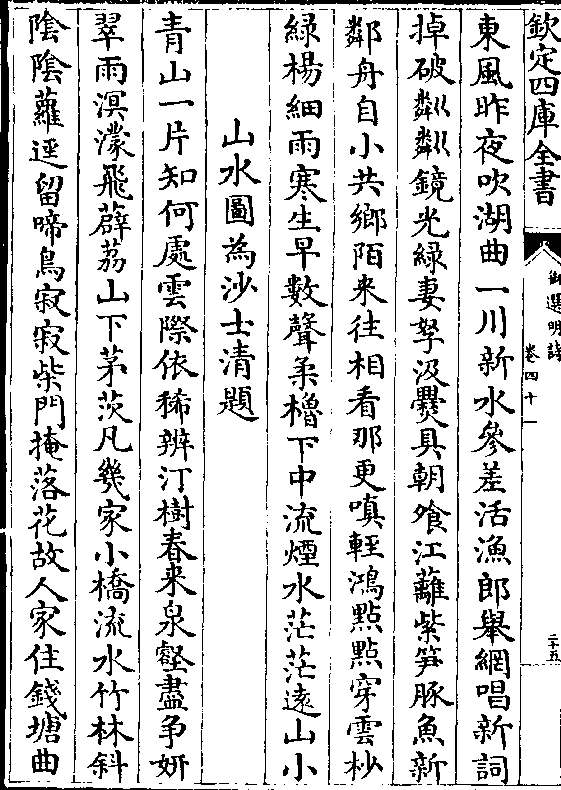 欽定四庫全書
御選明詩
卷四十一
二十五
東風昨夜吹湖曲一川新水參差活漁郎舉網唱新詞
掉破粼粼鏡光綠妻孥汲爨具朝飧江蘺紫笋豚魚新
鄰舟自小共鄉陌来往相看那更嗔輕鴻點點穿雲杪
綠楊細雨寒生早數聲柔櫓下中流煙水茫茫遠山小
山水圖為沙士清題
青山一片知何處雲際依稀辨汀樹春来泉壑盡争妍
翠雨溟濛飛薜荔山下茅茨凡幾家小橋流水竹林斜
陰陰蘿逕留啼鳥寂寂柴門掩落花故人家住錢塘曲